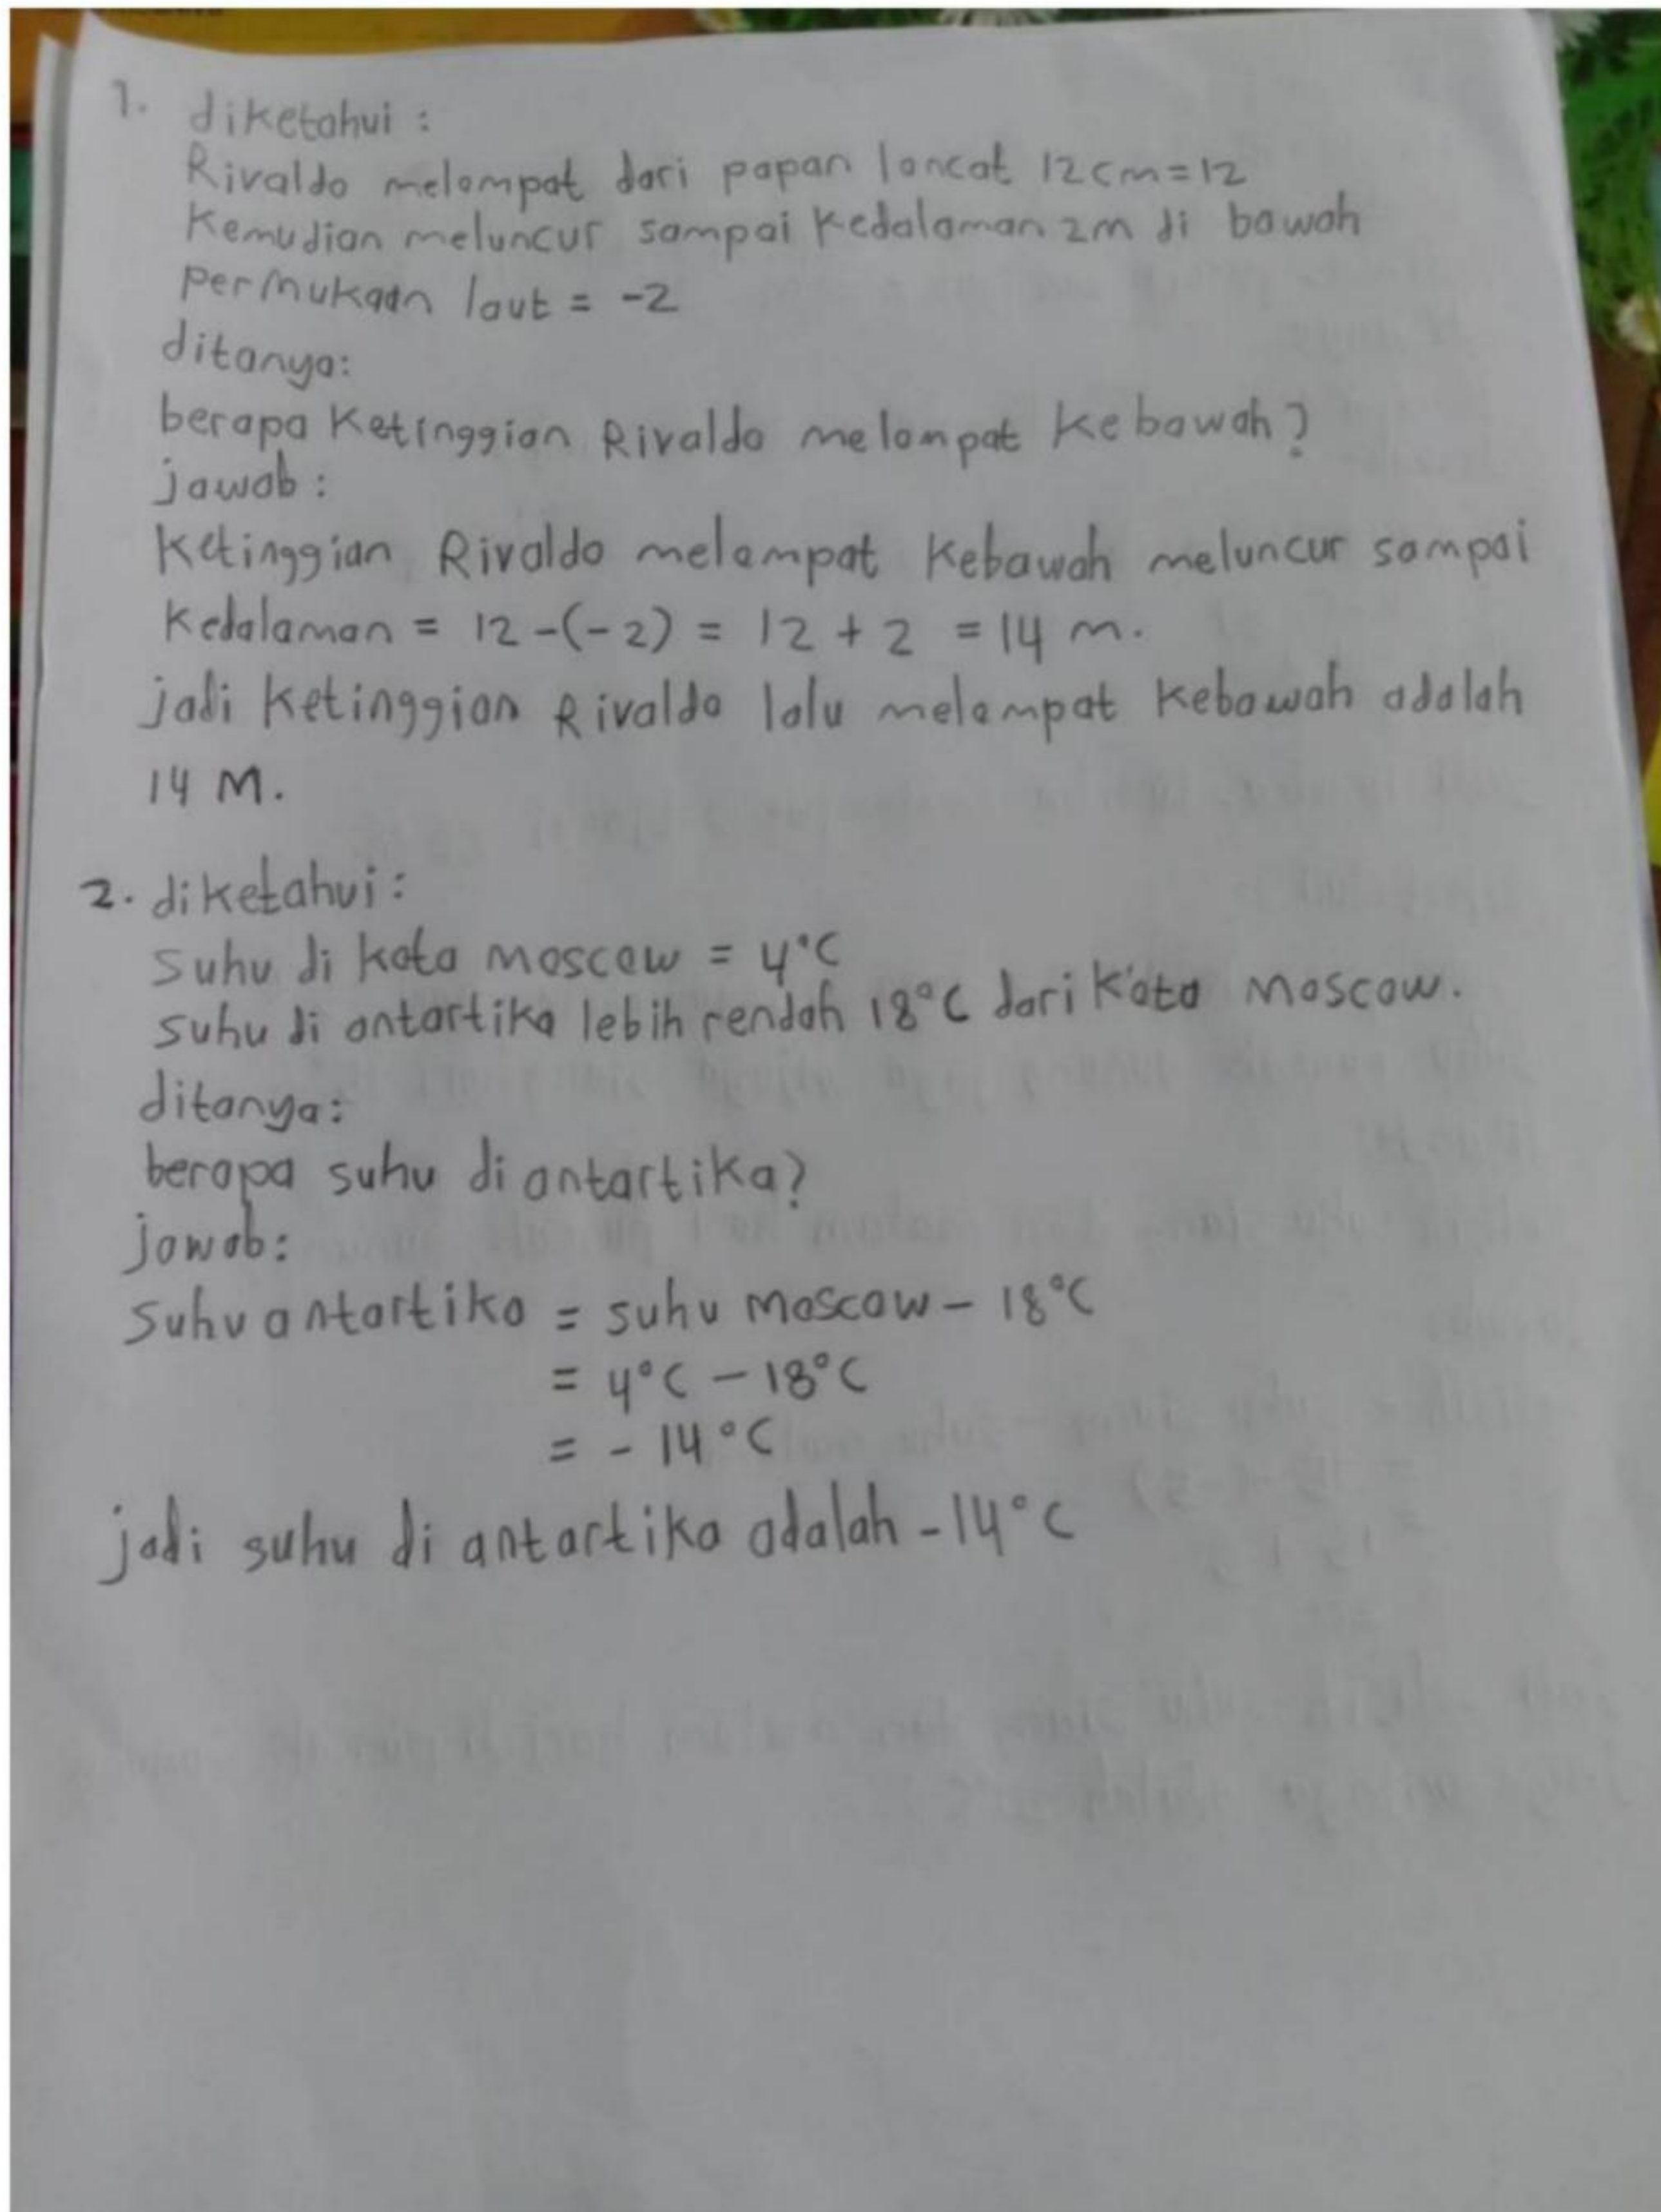 1. diketahui :
Rivaldo melompat dari papan loncat 12 cm = 12
Kemudian meluncur sampai kedalaman 2m di bawah
permukaan laut = -2
ditanya:
berapa Ketinggian Rivaldo melompat kebawah?
jawab :
Ketinggian Rivaldo melompat Kebawah meluncur sampai
Kedalaman = 12 -(-2) = 12 + 2 = 14 m.
jadi Ketinggian Rivaldo lalu melompat kebawah adalah
14 M.
2. diketahui :
Suhu di kota moscow = 4°C
suhu di antartika lebih rendah 18°C dari kota moscow.
ditanya:
berapa suhu di antartika?
jawab:
Suhu antartika = suhu moscow - 18°C
= 4°C - 18°C
= - 14°C
jadi suhu di antartika adalah -14°C